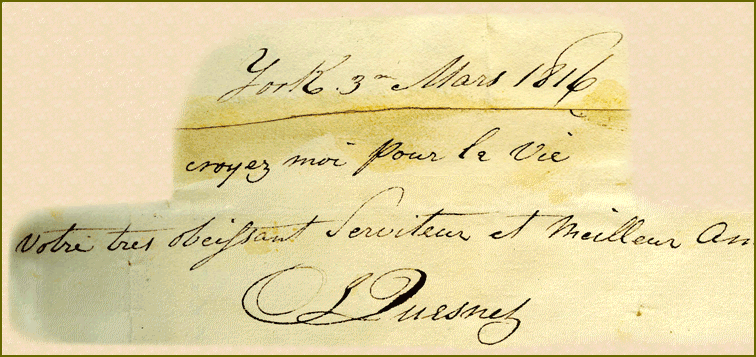 York 3m Mars 1816
croyez moi pour la Vie
Votre tres obeissant Serviteur et Meilleur Am
L Quesnel